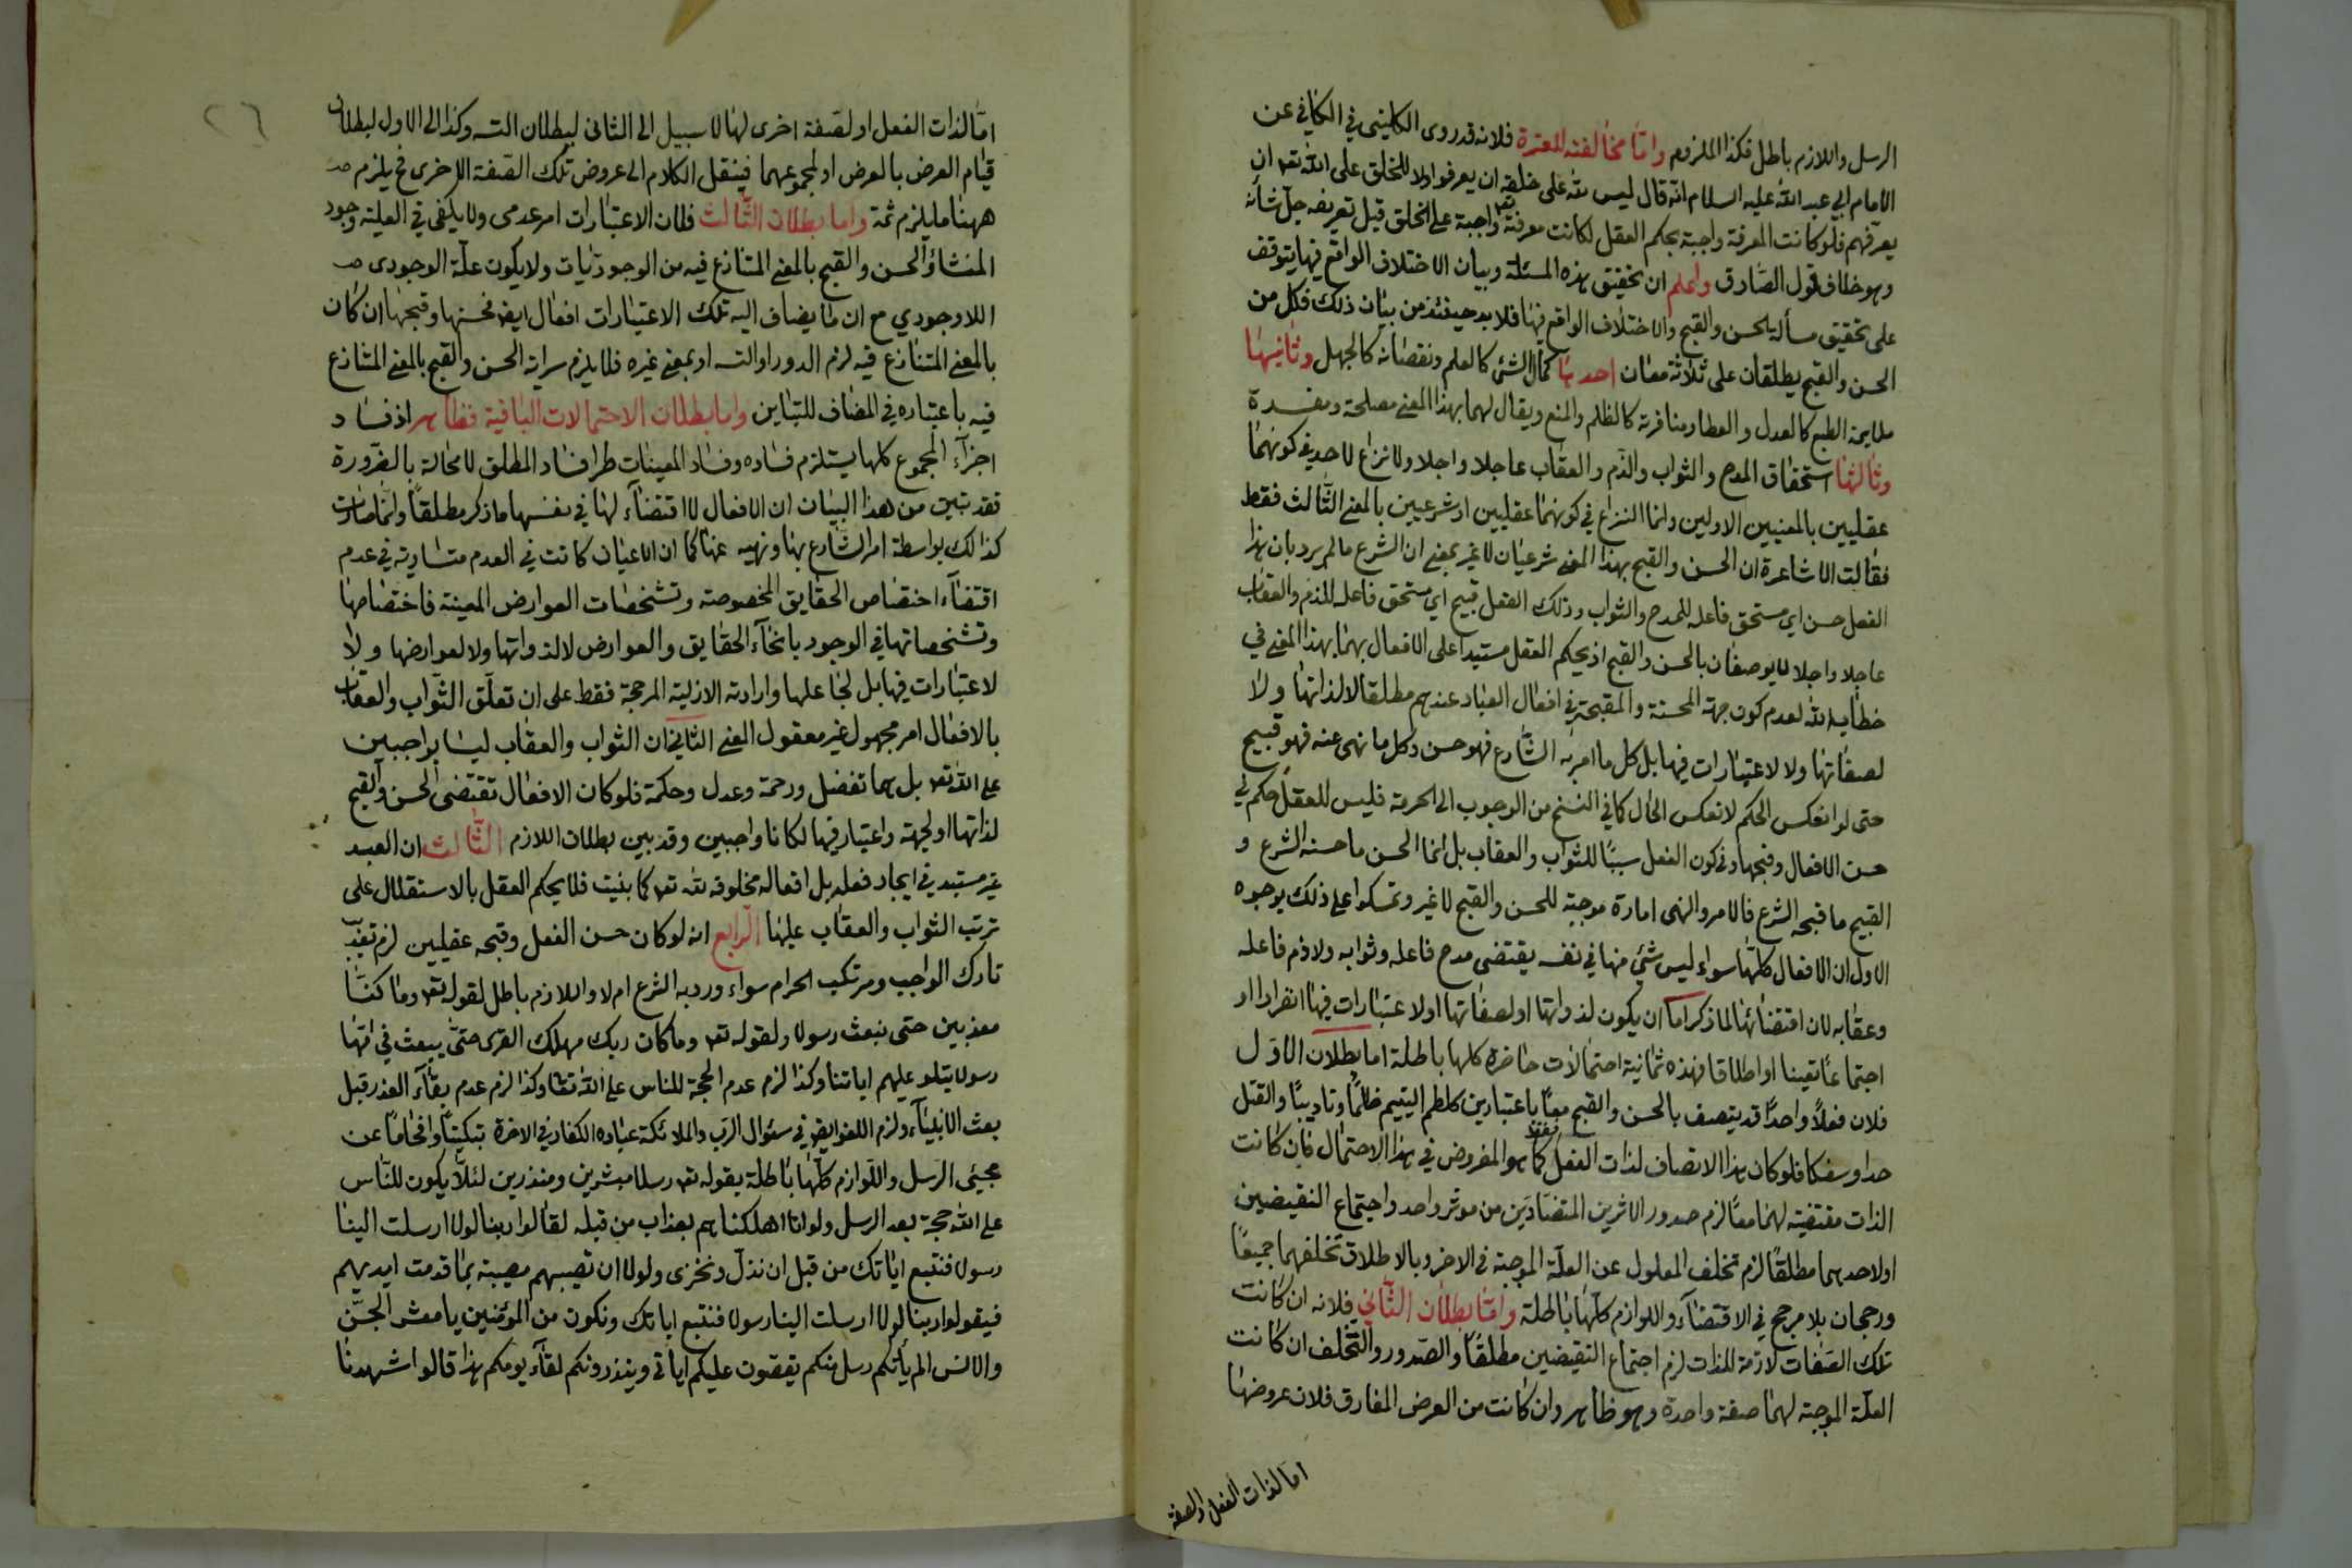 الرسل واللازم باطل فكذا الملزوم واما مخالفته للعترة فلانه قد روى الكليني في الكافي عن
الامام ابي عبد الله عليه السلام انه قال ليس لله على خلقه ان يعرفوا ولا للخلق على الله تعه ان
يعرفهم فلو كانت المعرفة واجبة بحكم العقل لكانت معرفته تعه واجبة على الخلق قبل تعريفه جل شأنه
وهو خلاف قول الصادق واعلم ان تحقيق هذه المسئلة وبيان الاختلاف الواقع فيها يتوقف
على تحقيق مسألة الحسن والقبح والاختلاف الواقع فيها فلا بد حينئذ من بيان ذلك فكل من
الحسن والقبح يطلقان على ثلاثة معان احدها كمال الشئ كالعلم ونقصانه كالجهل وثانيها
ملايمة الطبع كالعدل والعطا ومنافرته كالظلم والمنع ويقال لهما بهذا المعنى مصلحة ومفسدة
وثالثها استحقاق المدح والثواب والذم والعقاب عاجلا واجلا ولا نزاع لاحد في كونهما
عقليين بالمعنيين الاولين وانما النزاع في كونهما عقليين او شرعيين بالمعنى الثالث فقط
فقالت الاشاعرة ان الحسن والقبح بهذا المعنى شرعيان لا غير بمعنى ان الشرع ما لم يرد بان هذا
الفعل حسن اي مستحق فاعله للمدح والثواب وذلك الفعل قبيح اي مستحق فاعله للذم والعقاب
عاجلا واجلا لا يوصفان بالحسن والقبح اذ يحكم العقل مستبدا على الافعال بهما بهذا المعنى في
خطاب الله لعدم كون جهة المحسنة والمقبحة في افعال العباد عندهم مطلقا لا لذاتها ولا
لصفاتها ولا لاعتبارات فيها بل كل ما امر به الشارع فهو حسن وكل ما نهى عنه فهو قبيح
حتى لو انعكس الحكم لانعكس الحال كما في النسخ من الوجوب الى الحرمة فليس للعقل حكم في
حسن الافعال وقبحها وفي كون الفعل سببا للثواب والعقاب بل انما الحسن ما حسنه الشرع و
القبيح ما قبحه الشرع فالامر والنهى امارة موجبة للحسن والقبح لا غير وتمسكوا على ذلك بوجوه
الاول ان الافعال كلها سواء ليس شئ منها في نفسه يقتضى مدح فاعله وثوابه ولا ذم فاعله
وعقابه لان اقتضائها لما ذكر اما ان يكون لذواتها او لصفاتها او لاعتبارات فيها انفرادا او
اجتماعا تعينا او اطلاقا فهذه ثمانية احتمالات حاضرة كلها باطلة اما بطلان الاول
فلان فعلا واحدا قد يتصف بالحسن والقبح معا باعتبارين كلطم اليتيم ظلما وتاديبا والقتل
حدا وسفكا فلو كان هذا الاتصاف لذات الفعل فقط كما هو المفروض في هذا الاحتمال فان كانت
الذات مقتضية لهما معا لزم صدور الاثرين المتضادين من موثر واحد واجتماع النقيضين
او لاحدهما مطلقا لزم تخلف المعلول عن العلة الموجبة في الاخر وبالاطلاق تخلفهما جميعا
ورجحان بلا مرجح في الاقتضآء واللوازم كلها باطلة واما بطلان الثاني فلانه ان كانت
تلك الصفات لازمة للذات لزم اجتماع النقيضين مطلقا والصدور والتخلف ان كانت
العلة الموجبة لهما صفة واحدة وهو ظاهر وان كانت من العرض المفارق فلان عروضها
اما لذات الفعل او لصفة
٢٦
اما لذات الفعل او لصفة اخرى لها لا سبيل الى الثانى لبطلان التسـ وكذا الى الاول لبطلان
قيام العرض بالعرض او لمجموعهما فينقل الكلام الى عروض تلك الصفة الاخرى فح يلزم
ههنا ما يلزم ثمة واما بطلان الثالث فلان الاعتبارات امر عدمى ولا يكفى في العلية وجود
المنشاؤ الحسن والقبح بالمعنى المتنازع فيه من الوجوديات ولا يكون علة الوجودى
اللا وجودي مع ان ما يضاف اليه تلك الاعتبارات افعال ايضا فحسنها وقبحها ان كان
بالمعنى المتنازع فيه لزم الدور او التسـ او بمعنى غيره فلا يلزم سراية الحسن والقبح بالمعنى المتنازع
فيه باعتباره في المضاف للتباين واما بطلان الاحتمالات الباقية فظاهر اذ فساد
اجزآء المجموع كلها يستلزم فساده وفساد المعينات طرا فساد المطلق لا محالة بالضرورة
فقد تبين من هذا البيان ان الافعال لا اقتضآء لها في نفسها ما ذكر مطلقا وانما صارت
كذالك بواسطة امر الشارع بها ونهيه عنها كما ان الاعيان كانت في العدم متساوية في عدم
اقتضآء اختصاص الحقايق المخصوصة وتشخصات العوارض المعينة فاختصاصها
وتشخصاتها في الوجود بانحآء الحقايق والعوارض لا لذواتها ولا لعوارضها ولا
لاعتبارات فيها بل لجاعلها وارادته الازلية المرجحة فقط على ان تعلق الثواب والعقاب
بالافعال امر مجهول غير معقول المعنى الثاني ان الثواب والعقاب ليسا بواجبين
على الله تعه بل هما تفضل ورحمة وعدل وحكمة فلو كان الافعال تقتضى الحسن والقبح
لذاتها او لجهة واعتبار فيها لكانا واجبين وقد بين بطلان اللازم الثالث ان العبد
غير مستبد في ايجاد فعله بل افعاله مخلوقة لله تعه كما بنيت فلا يحكم العقل بالاستقلال على
ترتب الثواب والعقاب عليها الرابع انه لو كان حسن الفعل وقبحه عقليين لزم تعذيب
تارك الواجب ومرتكب الحرام سواء ورد به الشرع ام لا واللازم باطل لقوله تعه وما كنا
معذبين حتى نبعث رسولا ولقوله تعه وما كان ربك مهلك القرى حتى يبعث في امها
رسولا يتلو عليهم اياتنا وكذا لزم عدم الحجة للناس على الله تعا وكذا لزم عدم بقآء العذر قبل
بعث الانبيآء ولزم اللغو ايضا في سئوال الرب والملائكة عباده الكفار في الاخرة تبكيتا وافحاما عن
مجيئى الرسل واللوازم كلها باطلة بقوله تعه رسلا مبشرين ومنذرين لئلا يكون للناس
على الله حجة بعد الرسل ولو انا اهلكناهم بعذاب من قبله لقالوا ربنا لولا ارسلت الينا
رسولا فنتبع اياتك من قبل ان نذل ونخزى ولولا ان تصيبهم مصيبة بما قدمت ايديهم
فيقولوا ربنا لولا ارسلت الينا رسولا فنتبع اياتك ونكون من المؤمنين يا معشر الجن
والانس الم ياتكم رسل منكم يقصون عليكم اياتى وينذرونكم لقآء يومكم هذا قالوا شهدنا